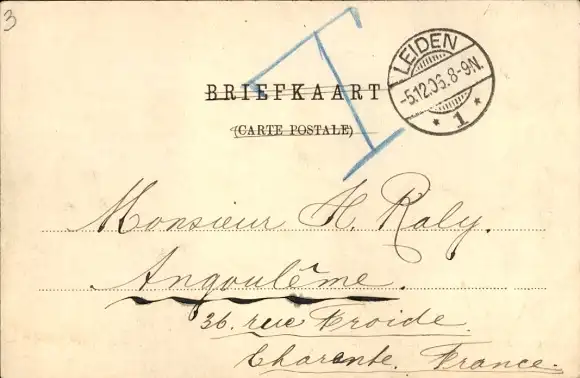 3
T
LEIDEN
-5.12.06.8-9N.
* 1 *
BRIEFKAART
(CARTE POSTALE)
Monsieur H. Raly.
Angoulême.
36. rue Froide.
Charente. France.